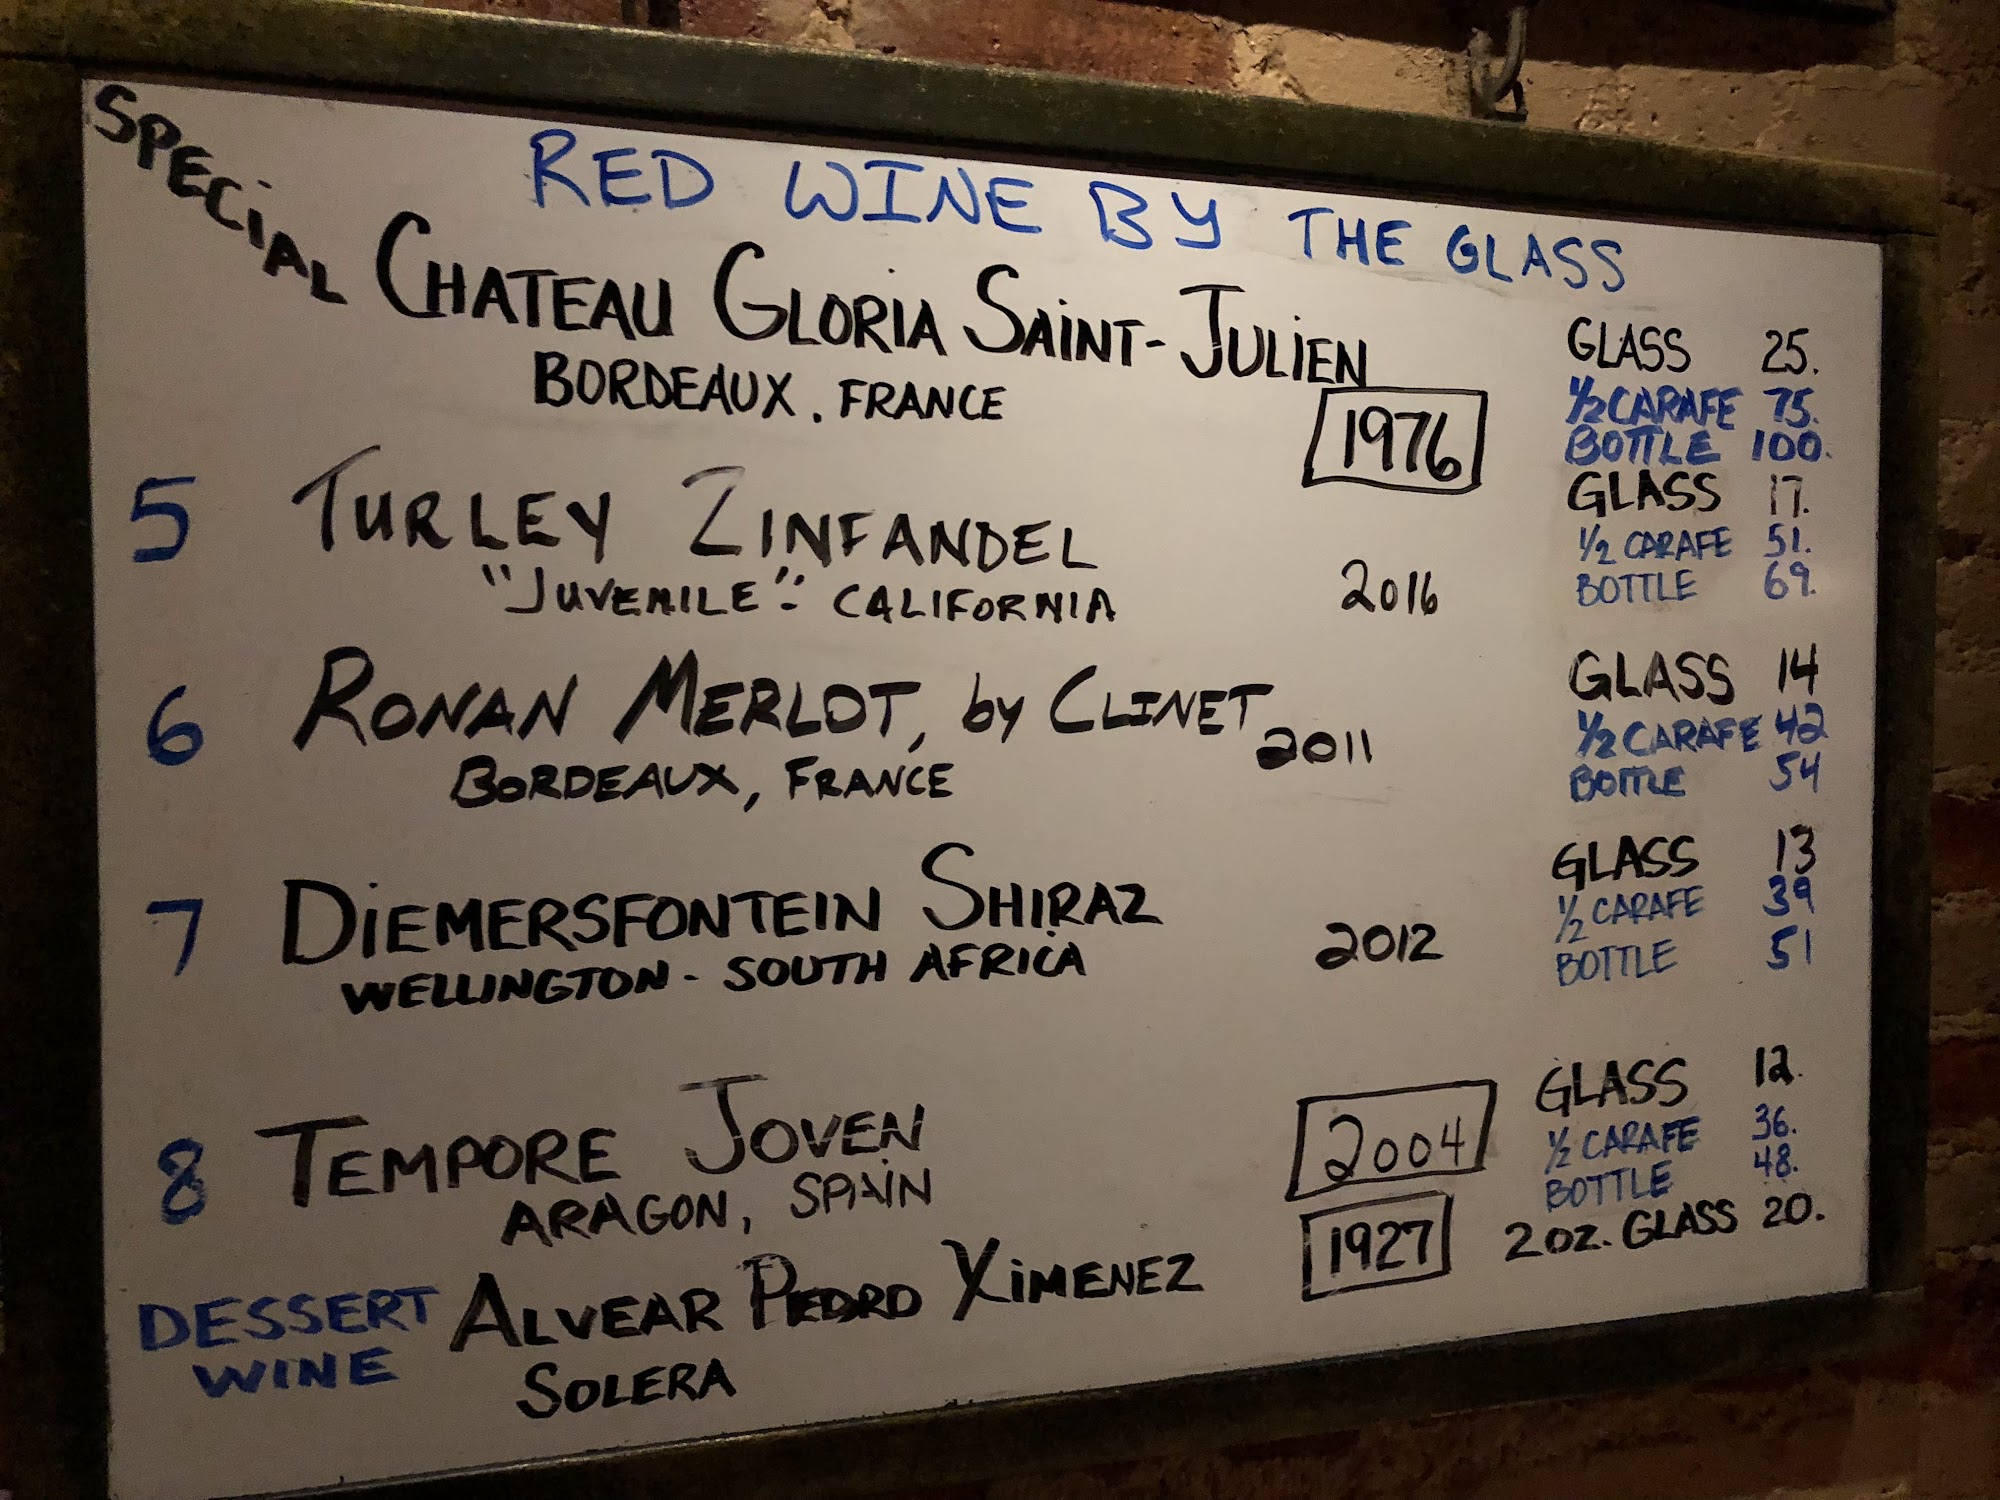 SPECiAL
RED WINE BY THE GLASS
CHATEAU GLORIA SAiNT-JULIEN
BORDEAUX, FRANCE
1976
GLASS 25.
1/2 CARAFE 75.
BOTTLE 100.
5 TURLEY ZINFANDEL
"JUVENILE" - CALIFORNIA
2016
GLASS 17.
1/2 CARAFE 51.
BOTTLE 69.
6 RONAN MERLOT, by CLINET 2011
BORDEAUX, FRANCE
GLASS 14
1/2 CARAFE 42
BOTTLE 54
7 DiEMERSFONTEIN SHIRAZ
WELLINGTON - SOUTH AFRICA
2012
GLASS 13
1/2 CARAFE 39
BOTTLE 51
8 TEMPORE JOVEN
ARAGON, SPAIN
2004
GLASS 12.
1/2 CARAFE 36.
BOTTLE 48.
DESSERT WINE
ALVEAR PEDRO XiMENEZ
SOLERA
1927
2 OZ. GLASS 20.